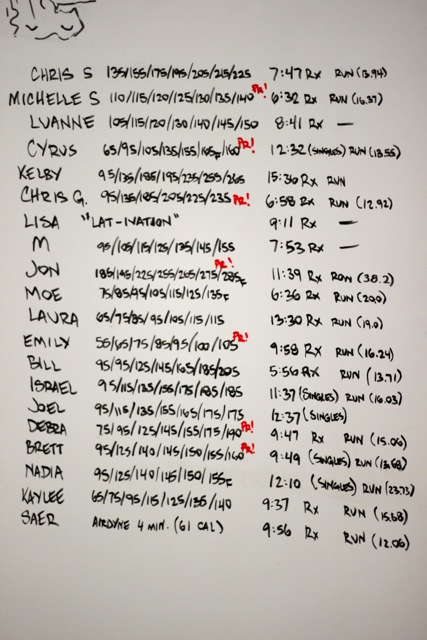 CHRIS S 135/155/175/195/205/215/225 7:47 Rx RUN (13.94)
MICHELLE S 110/115/120/125/130/135/140 PR! 6:32 Rx RUN (16.37)
LUANNE 105/115/120/130/140/145/150 8:41 Rx —
CYRUS 65/95/105/135/155/165F/160 PR! 12:32 (SINGLES) RUN (13.55)
KELBY 95/135/185/195/235/255/265 15:36 Rx RUN
CHRIS G. 95/135/185/205/225/235 PR! 6:58 Rx RUN (12.92)
LISA "LAT-INATION" 9:11 Rx —
M 95/105/115/125/135/145/155 7:53 Rx —
JON 185/195/225/255/265/275/285F PR! 11:39 Rx ROW (38.2)
MOE 75/85/95/105/115/125/135F 6:36 Rx RUN (20.0)
LAURA 65/75/85/95/105/115/115 13:30 Rx RUN (19.0)
EMILY 55/65/75/85/95/100/105 PR! 9:58 Rx RUN (16.24)
BILL 95/95/125/145/165/185/205 5:56 Rx RUN (13.71)
ISRAEL 95/115/135/155/175/185/185 11:37 (SINGLES) RUN (16.03)
JOEL 95/115/135/155/165/175/175 12:37 (SINGLES)
DEBRA 75/95/125/145/155/175/190 PR! 9:47 Rx RUN (15.06)
BRETT 95/125/140/145/150/155/160 PR! 9:49 (SINGLES) RUN (13.68)
NADIA 95/125/140/145/150/155F 12:10 (SINGLES) RUN (23.73)
KAYLEE 65/75/95/115/125/135/140 9:37 Rx RUN (15.68)
SAER AIRDYNE 4 MIN. (61 CAL) 9:56 Rx RUN (12.06)